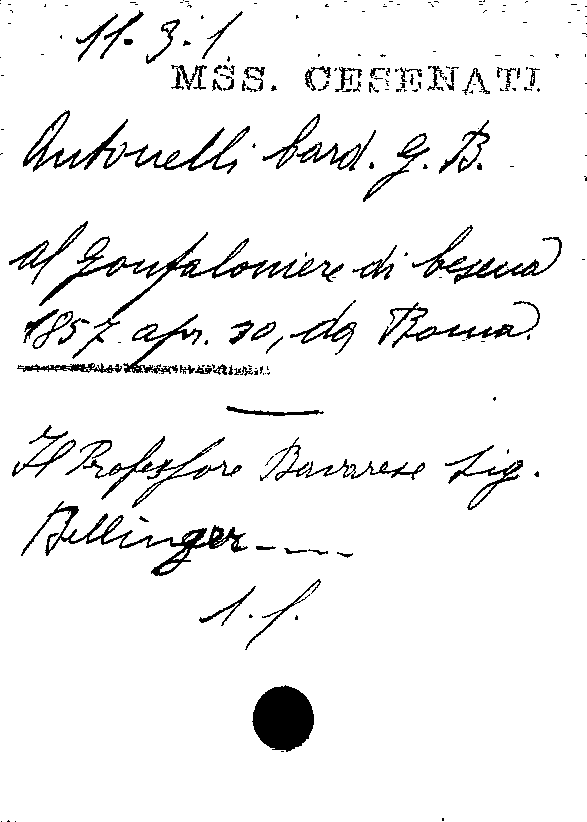 11. 3. 1
MSS. CESENATI
Antonelli Card. G. B.
al Gonfaloniere di Cesena
1857 apr. 30, da Roma.
Il Professore Bavarese Sig.
Bellinger----
1. f.